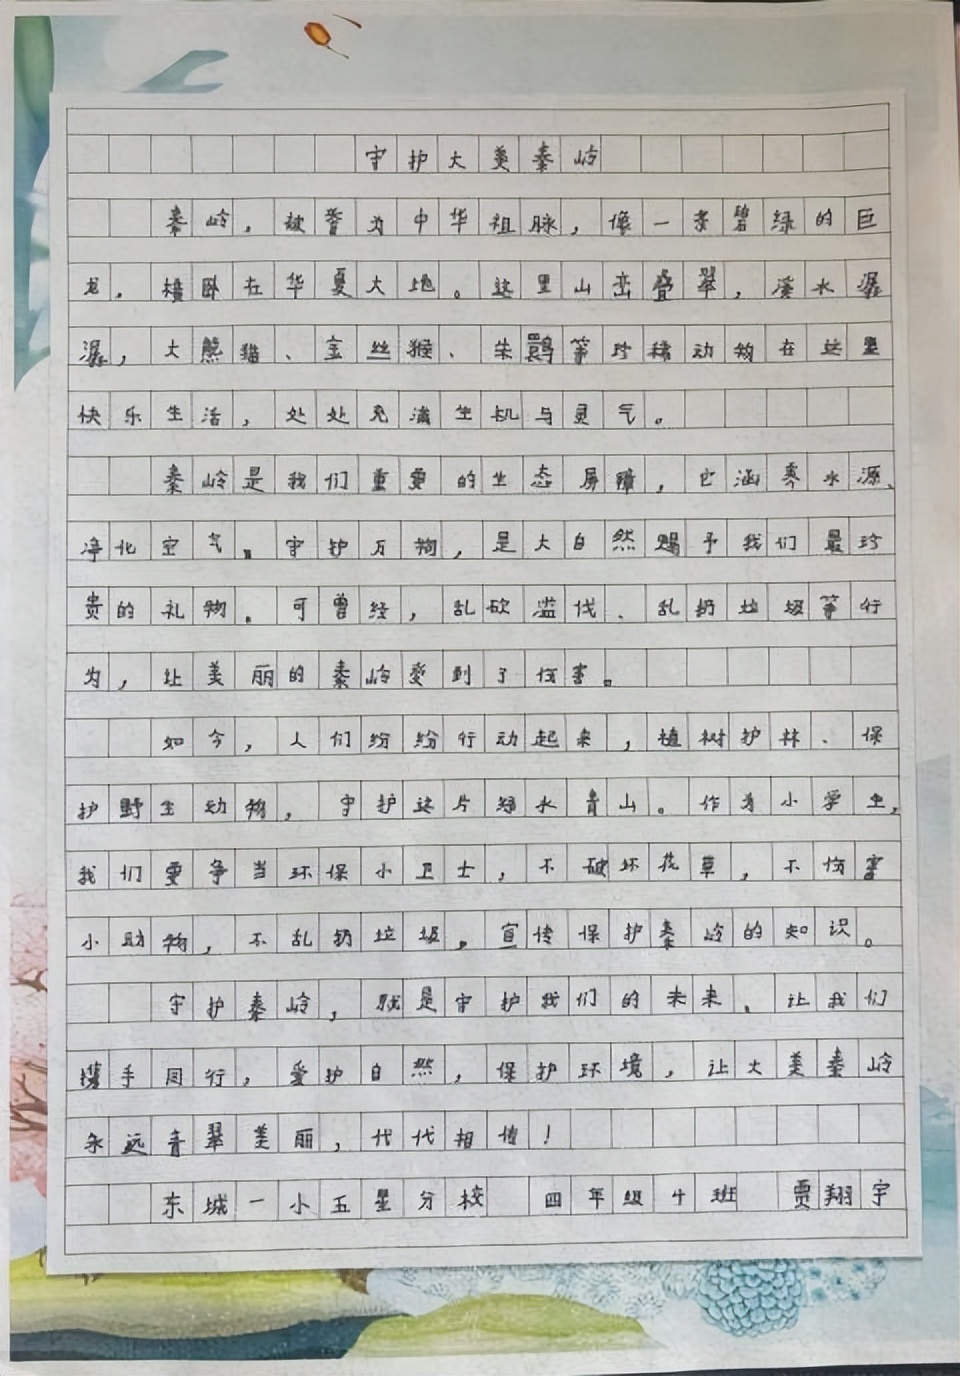 守护大美秦岭
秦岭，被誉为中华祖脉，像一条碧绿的巨
龙，横卧在华夏大地。这里山峦叠翠，溪水潺
潺，大熊猫、金丝猴、朱鹮等珍稀动物在这里
快乐生活，处处充满生机与灵气。
秦岭是我们重要的生态屏障，它涵养水源、
净化空气。守护万物，是大自然赐予我们最珍
贵的礼物。可曾经，乱砍滥伐、乱扔垃圾等行
为，让美丽的秦岭受到了伤害。
如今，人们纷纷行动起来，植树护林、保
护野生动物，守护这片绿水青山。作为小学生，
我们要争当环保小卫士，不破坏花草，不伤害
小动物，不乱扔垃圾。宣传保护秦岭的知识。
守护秦岭，就是守护我们的未来。让我们
携手同行，爱护自然，保护环境，让大美秦岭
永远青翠美丽，代代相传！
东城一小五星分校 四年级4班 贾翔宇